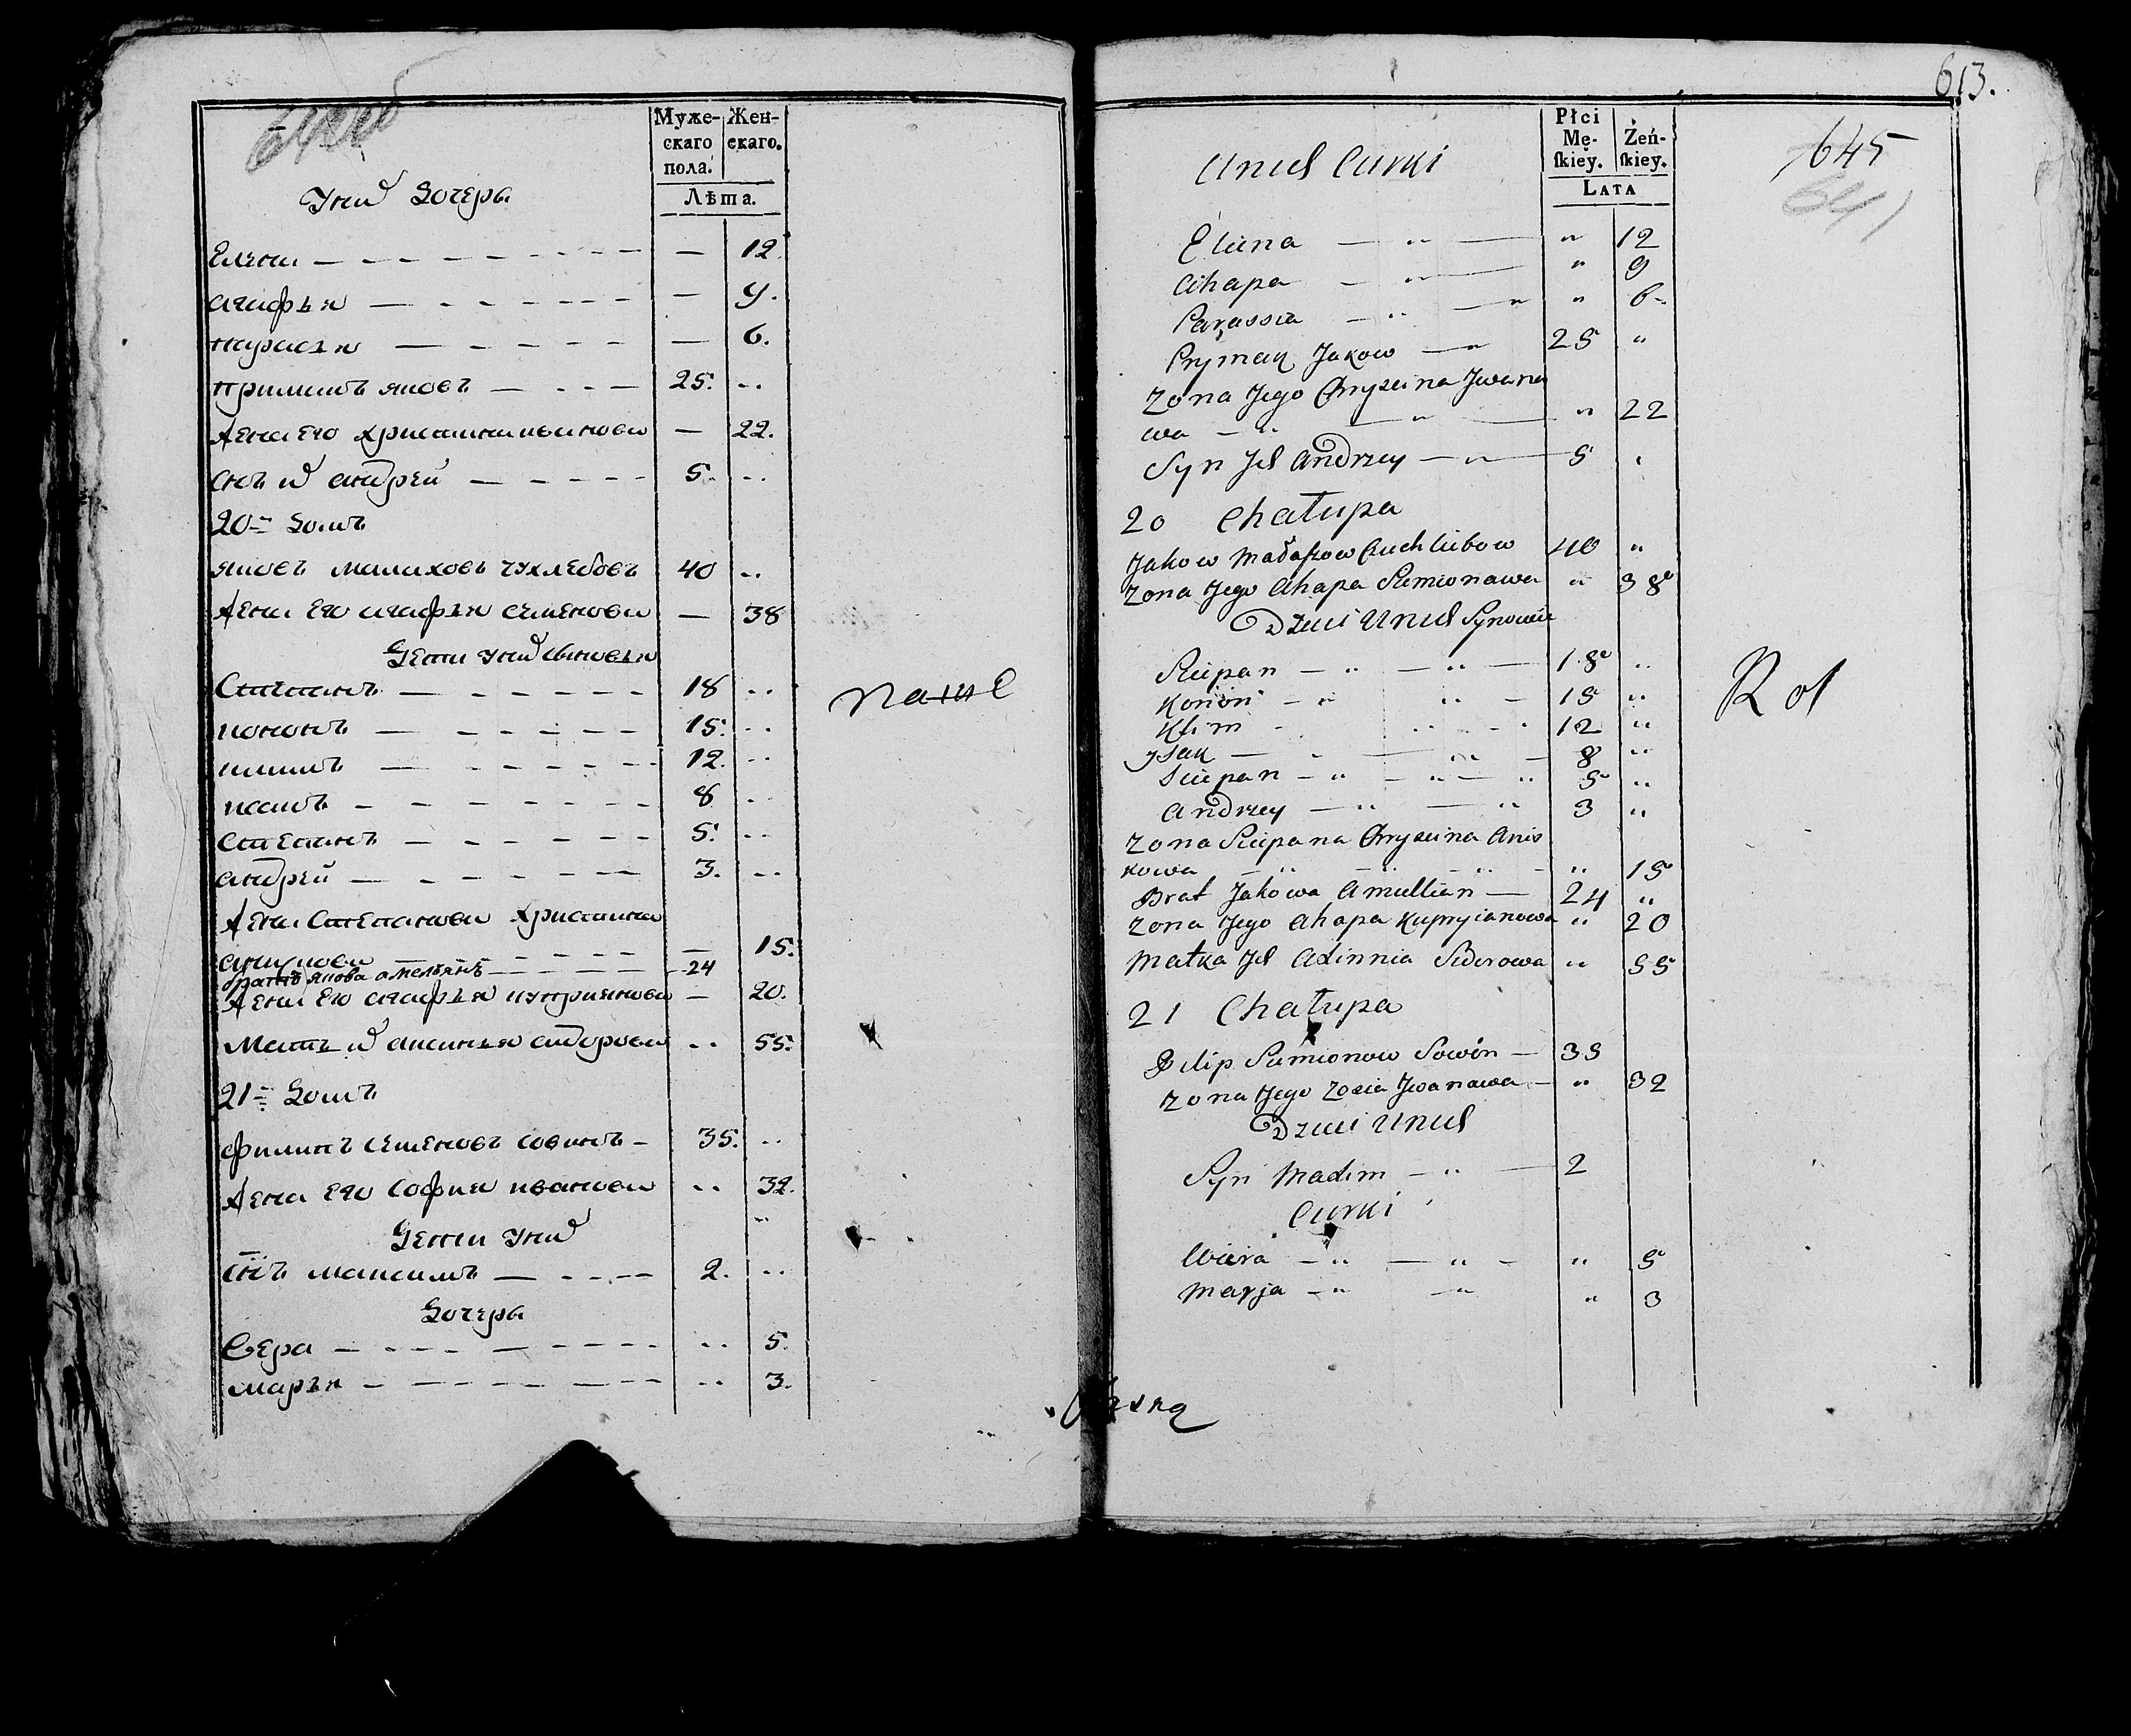 Муже-
скаго
пола.
Жен-
скаго.
Лѣта.
Унихъ Дочеры
Елена — 12
агафья — 9.
парасья — 6.
примакъ яковъ — 25.
Жена Его християна иванова — 22.
снъ ихъ андрей — 5.
20= Домъ
яковъ малаховъ чухлебовъ 40
Жена Его агафья семенова — 38
Дети унихъ сыновья
Степанъ — 18
кононъ — 15.
климъ — 12.
исакъ — 8
Степанъ — 5.
андрей — 3.
Жена Степанова Христина
аникова — 15.
братъ якова амельянъ — 24
Жена Его агафья куприянова — 20.
Мать ихъ аксинья сидорова 55.
21= Домъ
филипъ семеновъ совинъ — 35.
Жена Его София иванова 32.
Дети Унихъ
снъ максимъ — 2.
Дочеры
Вера — 5.
марья — 3.
613.
645
641
Płci
Mę-
ſkiey.
Żeń-
ſkiey.
LATA
Unich Curki
Elena — " — " 12
Ahapa — " — " 9
Parassia — " — " " 6
Prymak Jakow — " 25 "
Zona Jego Chryscina Jwana
wa — " — " " 22
Syn Jch Andrzey — " — 5
20 Chałupa
Jakow Małaszow Cuchlebow 40 "
Zona Jego Ahapa Siemionawa " 38
Dzieci Unich Synowie
Sciepan — " — " — 18 "
Konon — " " — 15 "
Klim - 12 "
Jsak — " — " — 8 "
Sciepan — " — " — " 5 "
Andrzey — " — " 3 "
Zona Sciepana Chryscina Anis
kowa — " — " — " - " 15
Brat Jakowa Amullian — 24 "
Zona Jego Ahapa Kupryianowa " 20
Matka Jch Axinnia Siderowa " 55
21 Chałupa
Filip Siemionow Sowin — 35
Zona Jego Zosia Jwanawa — " 32
Dzieci Unich
Syn Maxim — " — 2
Curki
Wiera — " — " — " 5
Marja — " — " " 3